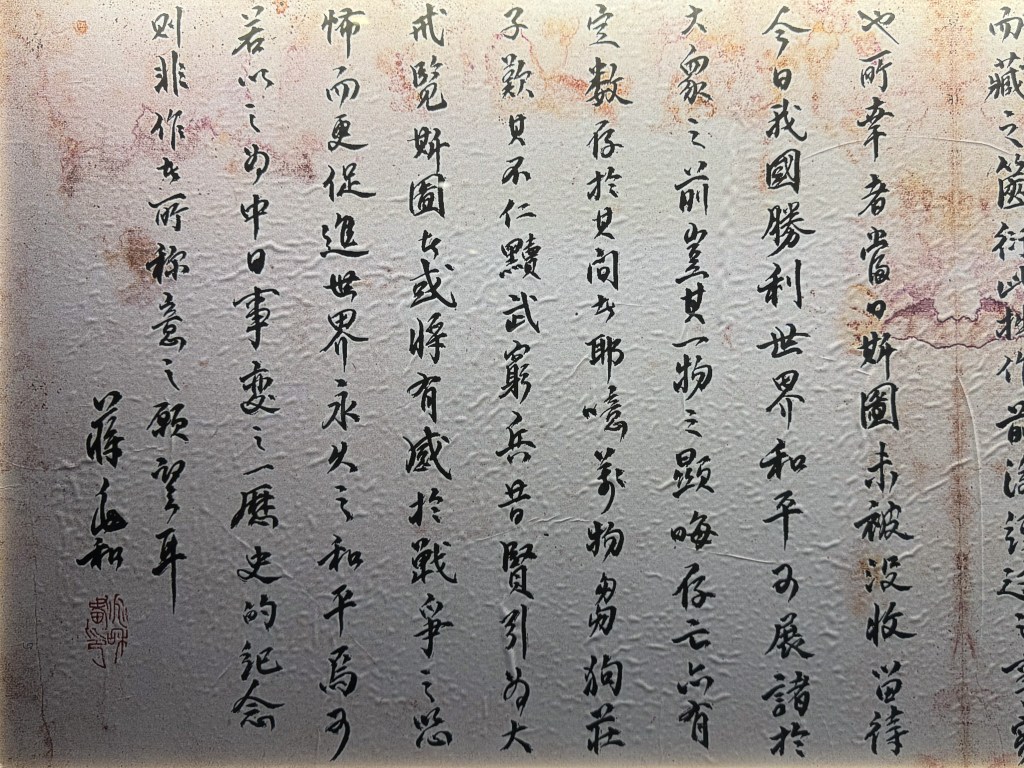 而藏之篋衍此拙作前後經過之實
也所幸者當日斯圖未被没收留待
今日我國勝利世界和平可展諸於
大衆之前豈其一物之顯晦存亡亦有
定數存於其间者耶噫萬物芻狗莊
子歎其不仁黷武窮兵昔賢引為大
戒覽斯圖者或將有感於戰爭之恐
怖而更促進世界永久之和平焉可
若以之為中日事變之一歷史的紀念
则非作者所称意之願望耳
蔣兆和